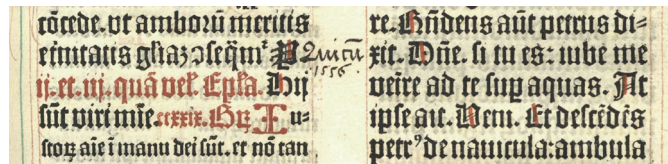 cōcede. vt amborū meritis
eternitatis gl̄iaȝ ↄseq̄m᷑ P
ij. et. iij. quā vel'. Ep̄la. Hij
sūt viri mīe. cxxix. Grȝ Iu-
stoꝝ aīe ī manu dei sūt. et nō tan
1556.
re. Rn̄dens aūt petrus di-
xit. Dn̄e. si tu es: iube me
veīre ad te suꝑ aquas. At
ipse ait. Veni. Et descēdēs
petrꝰ de nauicula: ambula